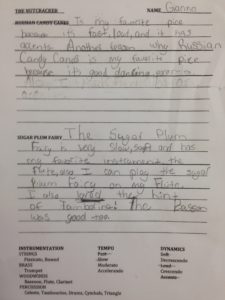 THE NUTCRACKER NAME Gannon
RUSSIAN CANDY CANES Is my favorite pice
because it's fast, loud, and it has
accents. Another reason why Russian
Candy Canes is my favorite pice
because it's good dancing
SUGAR PLUM FAIRY The Sugar Plum
Fairy is very Slow, soft and has
my favorite instrument, the
flute, also I can play the sugar
plum Fairy on my flute.
I also the hint
of Tambolin! The Basson
was good too.
INSTRUMENTATION TEMPO DYNAMICS
STRINGS Fast Soft
Pizzicato, Bowed Slow Decrescendo
BRASS Moderato Loud
Trumpet Accelerando Crescendo
WOODWINDS Accents
Bassoon, Flute, Clarinet
PERCUSSION
Celesta, Tambourine, Drums, Cymbals, Triangle